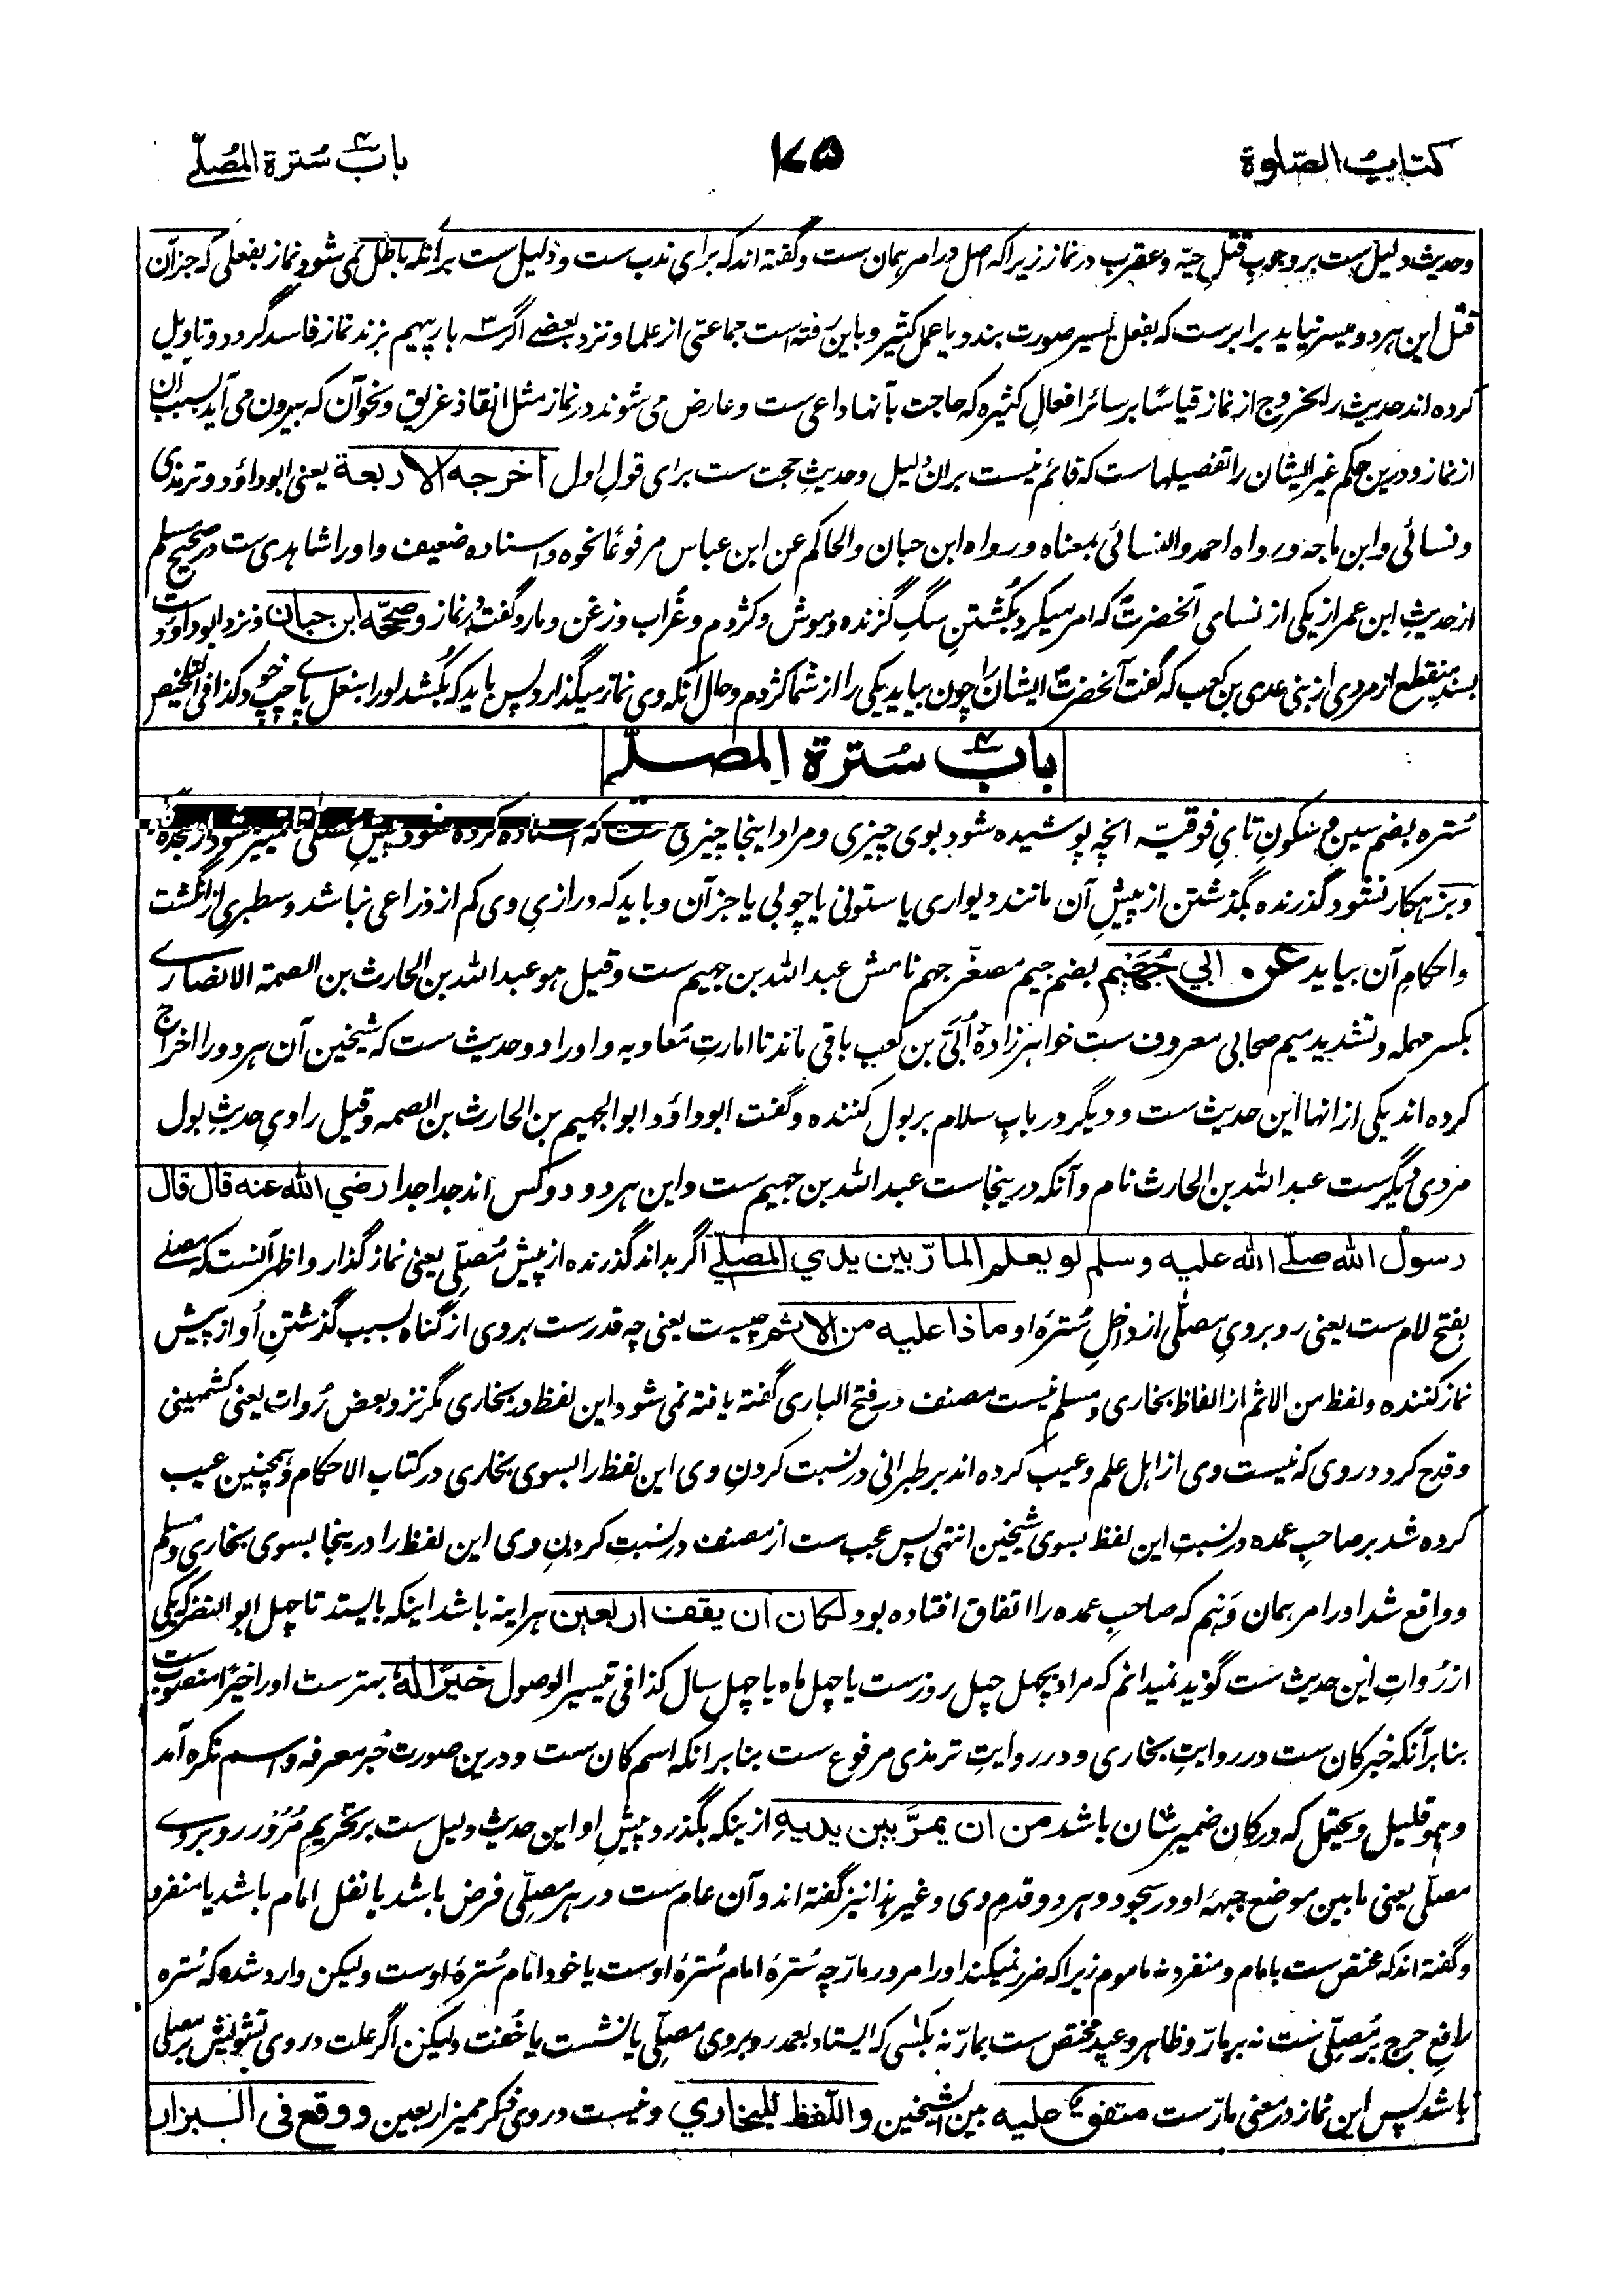 کتاب الصّلوة
۱۷۵
باب سُترة المُصلّے
وحدیث دلیل ست بر وجوبِ قتلِ حیّه وعقرب در نماز زیرا که اصل در امر همان ست وگفته اند که برای ندب ست و دلیل ست برآنکه باطل نمی شود نماز بفعلی که جز آن
قتل این هر دو میسر نیاید برابرست که بفعل یسیر صورت بندد یا عمل کثیر وباین رفته است جماعتی از علما ونزد بعضے اگر سه بار پیهم بزند نماز فاسد گردد وتاویل
کرده اند حدیث را بخروج از نماز قیاسًا بر سائر افعالِ کثیره که حاجت بآنها داعی ست وعارض می شوند در نماز مثل انقاذ غریق ونحو آن که بیرون می آید بسبب آن
از نماز ودرین حکم غیر ایشان را تفصیلهاست که قائم نیست بران دلیل وحدیث حجت ست برای قول اول اخرجه الاربعة یعنی ابوداؤد وترمذی
ونسائی وابن ماجه ورواه احمد والنسائی بمعناه ورواه ابن حبان والحاکم عن ابن عباس مرفوعًا نحوه واسناده ضعیف واورا شاهدی ست در صحیح مسلم
از حدیثِ ابن عمر از یکی از نسای آنحضرتؐ که امر میکرد بکُشتنِ سگِ گزنده وموش وکژدم وغُراب وزغن ومار وگفت در نماز وصححّه ابن حبان ونزد ابوداؤد ست
بسندِ منقطع از مردی از بنی عدی بن کعب که گفت آنحضرتؐ ایشان را چون بیاید یکی را از شما کژدم وحال آنکه وی نماز میگذارد پس باید که بکُشد اورا بنعل پاے چپ خود کذا فی التلخیص
باب سُترة المصلے
سُتره بضم سین وسکونِ تایِ فوقیّه انچه پوشیده شود بوی چیزی ومراد اینجا چیزی ست که استاده کرده شود پیشِ مصلّی تا تمییز شود از سجده
وبزهکار نشود گذرنده بگذشتن از پیشِ آن مانند دیواری یا ستونی یا چوبی یا جز آن وباید که درازیِ وی کم از ذراعی نباشد وسطبری از انگشت
واحکامِ آن بیاید عن ابي جُهَيْم بضم جیم مصغّر جهم نامش عبد الله بن جهیم ست وقیل هو عبد الله بن الحارث بن الصمة الانصارے
بکسر مهمله وتشدید میم صحابی معروف ست خواهرزادهٔ اُبَیّ بن کعب باقی ماند تا امارتِ مُعاویه واورا دو حدیث ست که شیخین آن هر دو را اخراج
کرده اند یکی از انها این حدیث ست ودیگر در بابِ سلام بر بول کننده وگفت ابوداؤد ابوالجهیم بن الحارث بن الصمه وقیل راویِ حدیثِ بول
مردی دیگرست عبد الله بن الحارث نام وآنکه درینجاست عبد الله بن جهیم ست واین هر دو دو کس اند جدا جدا رضي الله عنه قال قال
رسول الله صلّے الله علیه وسلم لو یعلم المارّ بین یدي المصلّي اگر بداند گذرنده از پیش مُصلّی یعنی نماز گذار واظهر آنست که مصلے
بفتح لام ست یعنی روبرویِ مصلّی از داخلِ سُترهٔ او ماذا علیه من الاثم چیست یعنی چه قدرست بروی از گناه بسبب گذشتنِ او از پیش
نماز کننده ولفظ من الاثم از الفاظ بخاری ومسلم نیست مصنف در فتح الباری گفته یافته نمی شود این لفظ در بخاری مگر نزد بعض رُوات یعنی کشمیهنی
وقدح کرد در وی که نیست وی از اهل علم وعیب کرده اند بر طبرانی در نسبت کردنِ وی این لفظ را بسوی بخاری در کتاب الاحکام وهمچنین عیب
کرده شد بر صاحبِ عمده در نسبتِ این لفظ بسوی شیخین انتهی پس عجب ست از مصنف در نسبتِ کردنِ وی این لفظ را درینجا بسوی بخاری ومسلم
وواقع شد اورا مر همان وَهم که صاحبِ عمده را اتفاق افتاده بود لکان ان یقف اربعین هر اینه باشد اینکه بایستد تا چهل ابوالنضر که یکی
از رُواتِ این حدیث ست گوید نمیدانم که مراد بچهل چهل روزست یا چهل ماه یا چهل سال کذا فی تیسیر الوصول خیرًا له بهترست اورا خیرًا منصوب ست
بنابر آنکه خبر کان ست در روایتِ بخاری ودر روایتِ ترمذی مرفوع ست بنابر انکه اسم کان ست ودرین صورت خبر معرفه واسم نکره آمد
وهو قلیل ویحتمل که در کان ضمیرِ شان باشد من ان یمرّ بین یدیهِ از ینکه بگذرد پیشِ او این حدیث دلیل ست بر تحریمِ مُرُور روبروے
مصلّی یعنی مابین موضع جبههٔ او در سجود وهر دو قدم وی وغیر هذا نیز گفته اند وآن عام ست در هر مصلّی فرض باشد یا نفل امام باشد یا منفرد
وگفته اند که مختص ست بامام ومنفرد نه ماموم زیرا که ضرر نمیکند اورا مرور مارّ چه سُترهٔ امام سُترهٔ اوست یا خود امام سُترهٔ اوست ولیکن وارد شده که سُتره
رافعِ حرج بر مُصلّی ست نه بر مارّ وظاهر وعید مختص ست بمارّ نه بکسی که ایستاد بعمد روبروی مصلّی یا نشست یا خُفت ولیکن اگر علت در وی تشویش بر مصلی
باشد پس این نماز در معنی مارّست متفق علیه بین الشیخین واللّفظ للبخاري ونیست در وی ذکر ممیز اربعین ووقع فی البزار